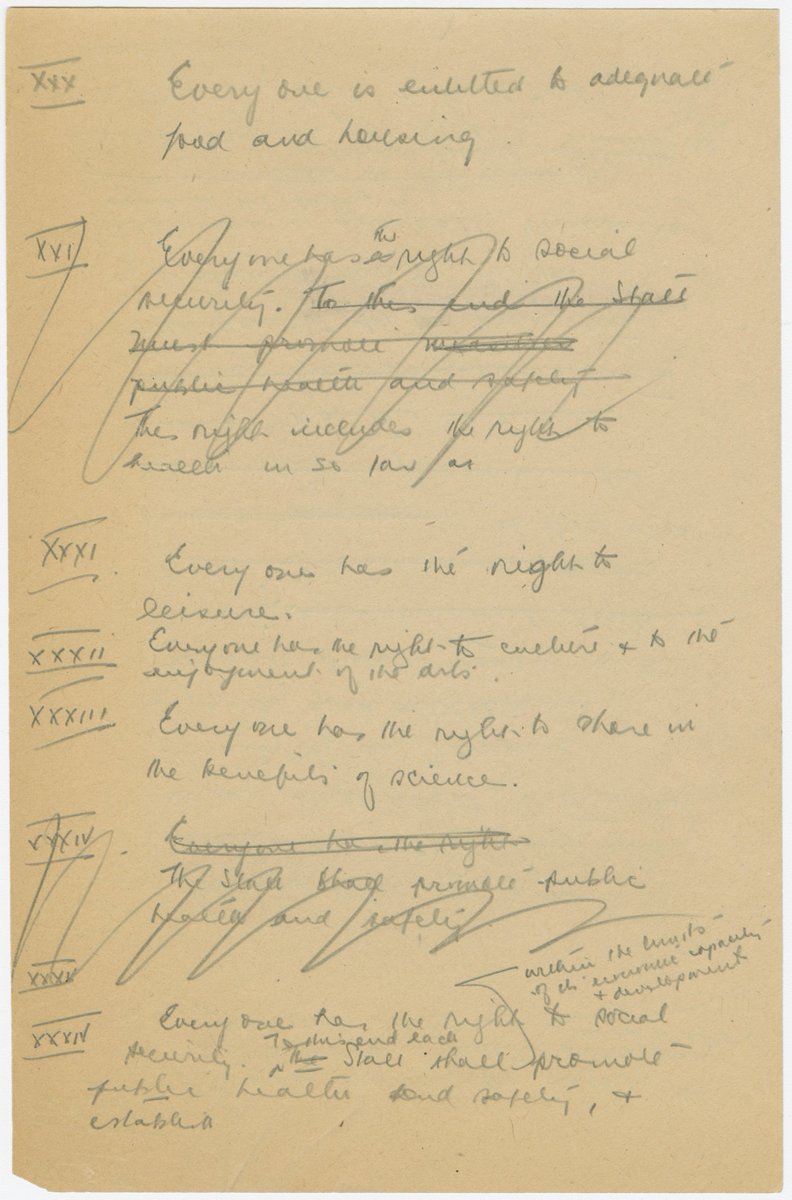 XXX Everyone is entitled to adequate
food and housing
XXI Everyone has a the right to social
security. To this end the State
must promote measures
public health and safety.
This right includes the right to
health in so far as
XXXI. Everyone has the right to
leisure.
XXXII Everyone has the right to culture & to the
enjoyment of the arts.
XXXIII Everyone has the right to share in
the benefits of science.
XXXIV. Everyone has the right
The State shall promote public
health and safety
XXXV
within the limits
of its economic capacity
& development
XXXIV Everyone has the right to social
To this end each
security. the State shall promote
public health and safety, &
establish